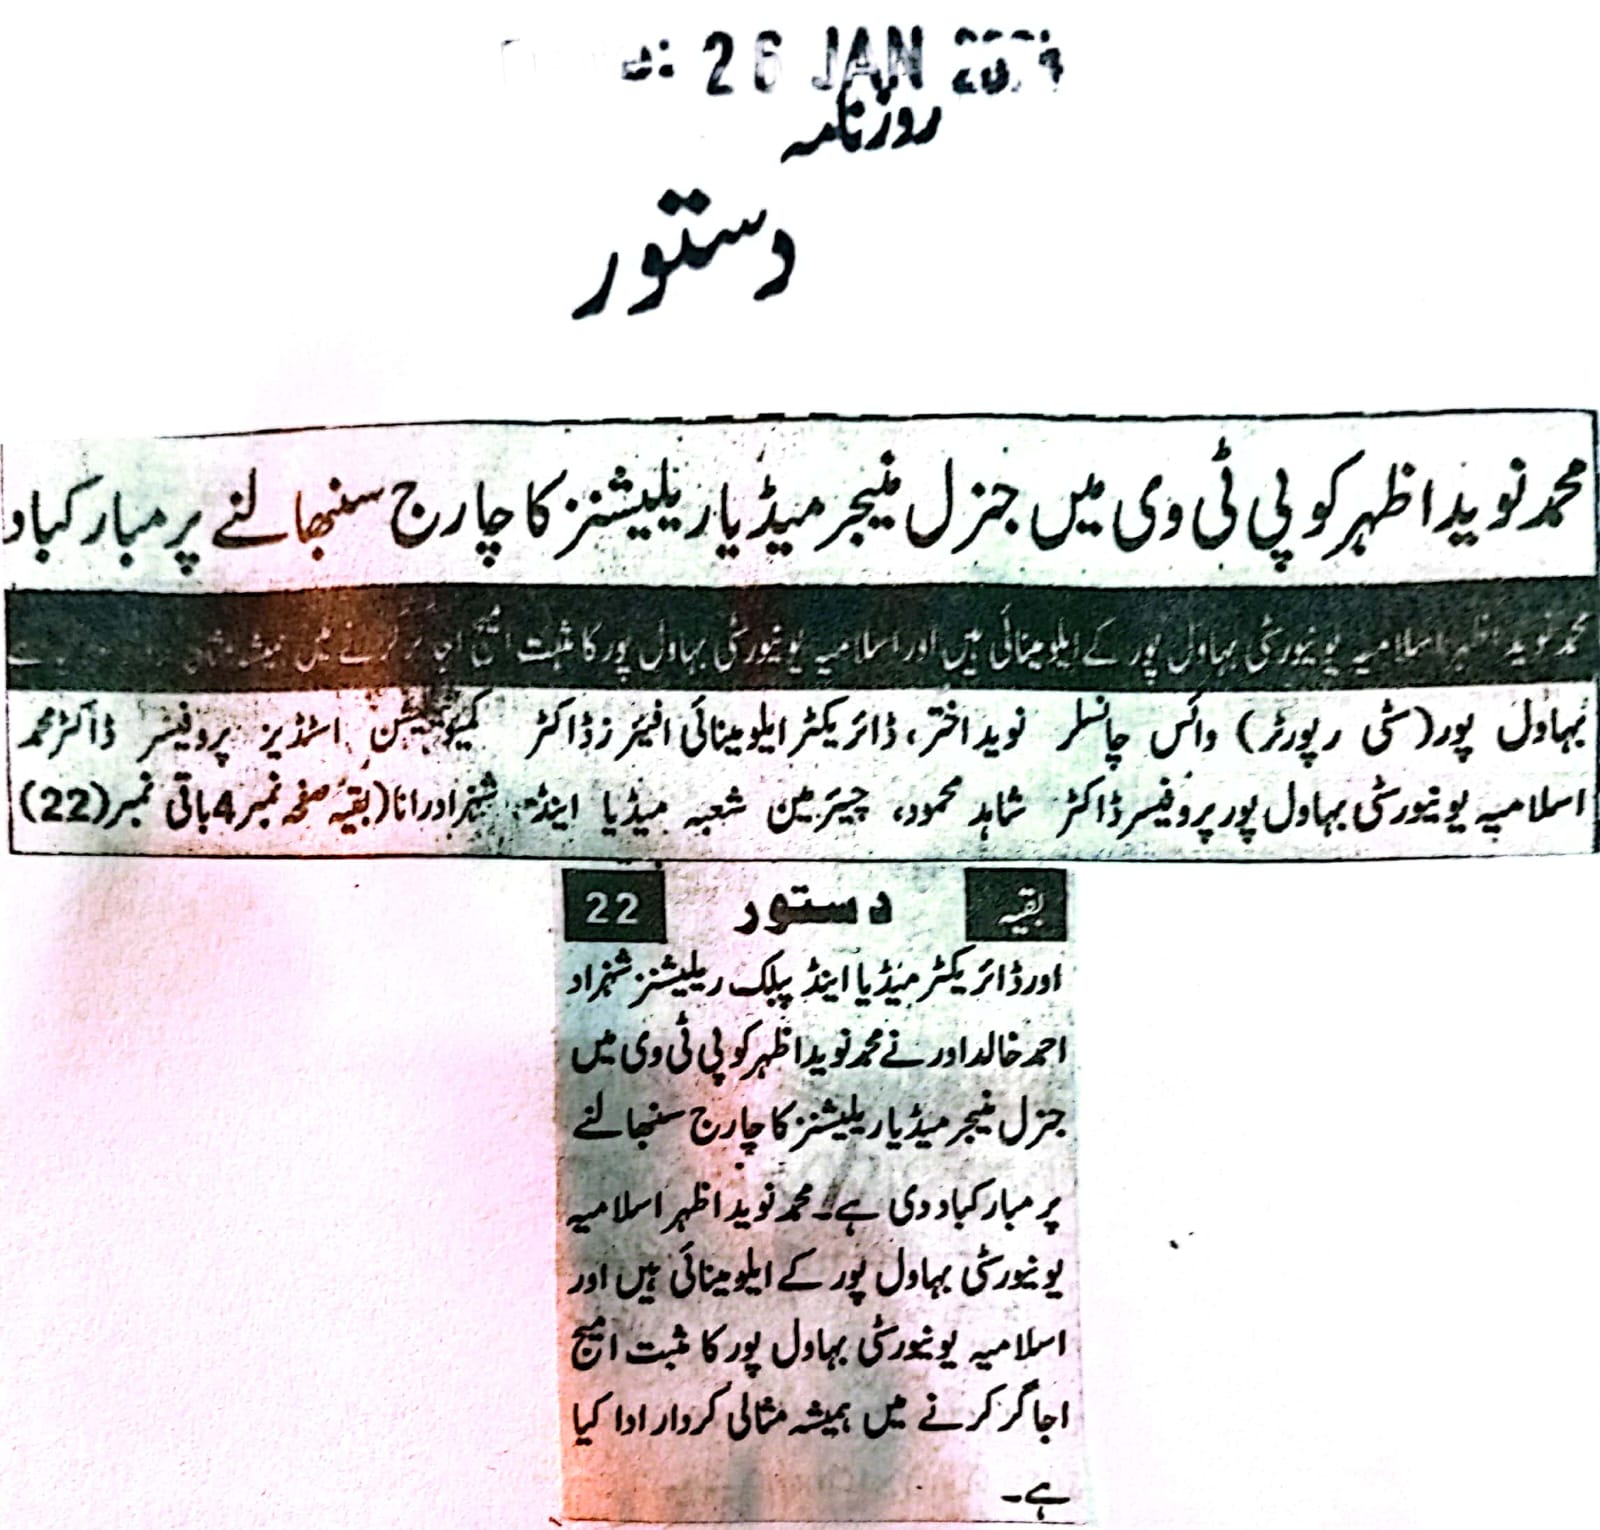 26 JAN
روزنامہ
دستور
محمد نوید اظہر کو پی ٹی وی میں جنرل منیجر میڈیا ریلیشنز کا چارج سنبھالنے پر مبارکباد
محمد نوید اظہر اسلامیہ یونیورسٹی بہاول پور کے ایلومینائی ہیں اور اسلامیہ یونیورسٹی بہاول پور کا مثبت امیج اجاگر کرنے میں ہمیشہ
بہاول پور(سٹی رپورٹر) وائس چانسلر
اسلامیہ یونیورسٹی بہاول پور پروفیسر ڈاکٹر
نوید اختر، ڈائریکٹر ایلومینائی افیئرز ڈاکٹر
شاہد محمود، چیئرمین شعبہ میڈیا اینڈ
کمیونیکیشن اسٹڈیز پروفیسر ڈاکٹر محمد
شہزاد رانا(بقیہ صفحہ نمبر4باقی نمبر(22)
بقیہ دستور 22
اور ڈائریکٹر میڈیا اینڈ پبلک ریلیشنز شہزاد
احمد خالد اور نے محمد نوید اظہر کو پی ٹی وی میں
جنرل منیجر میڈیا ریلیشنز کا چارج سنبھالنے
پر مبارکباد دی ہے۔ محمد نوید اظہر اسلامیہ
یونیورسٹی بہاول پور کے ایلومینائی ہیں اور
اسلامیہ یونیورسٹی بہاول پور کا مثبت امیج
اجاگر کرنے میں ہمیشہ مثالی کردار ادا کیا
ہے۔